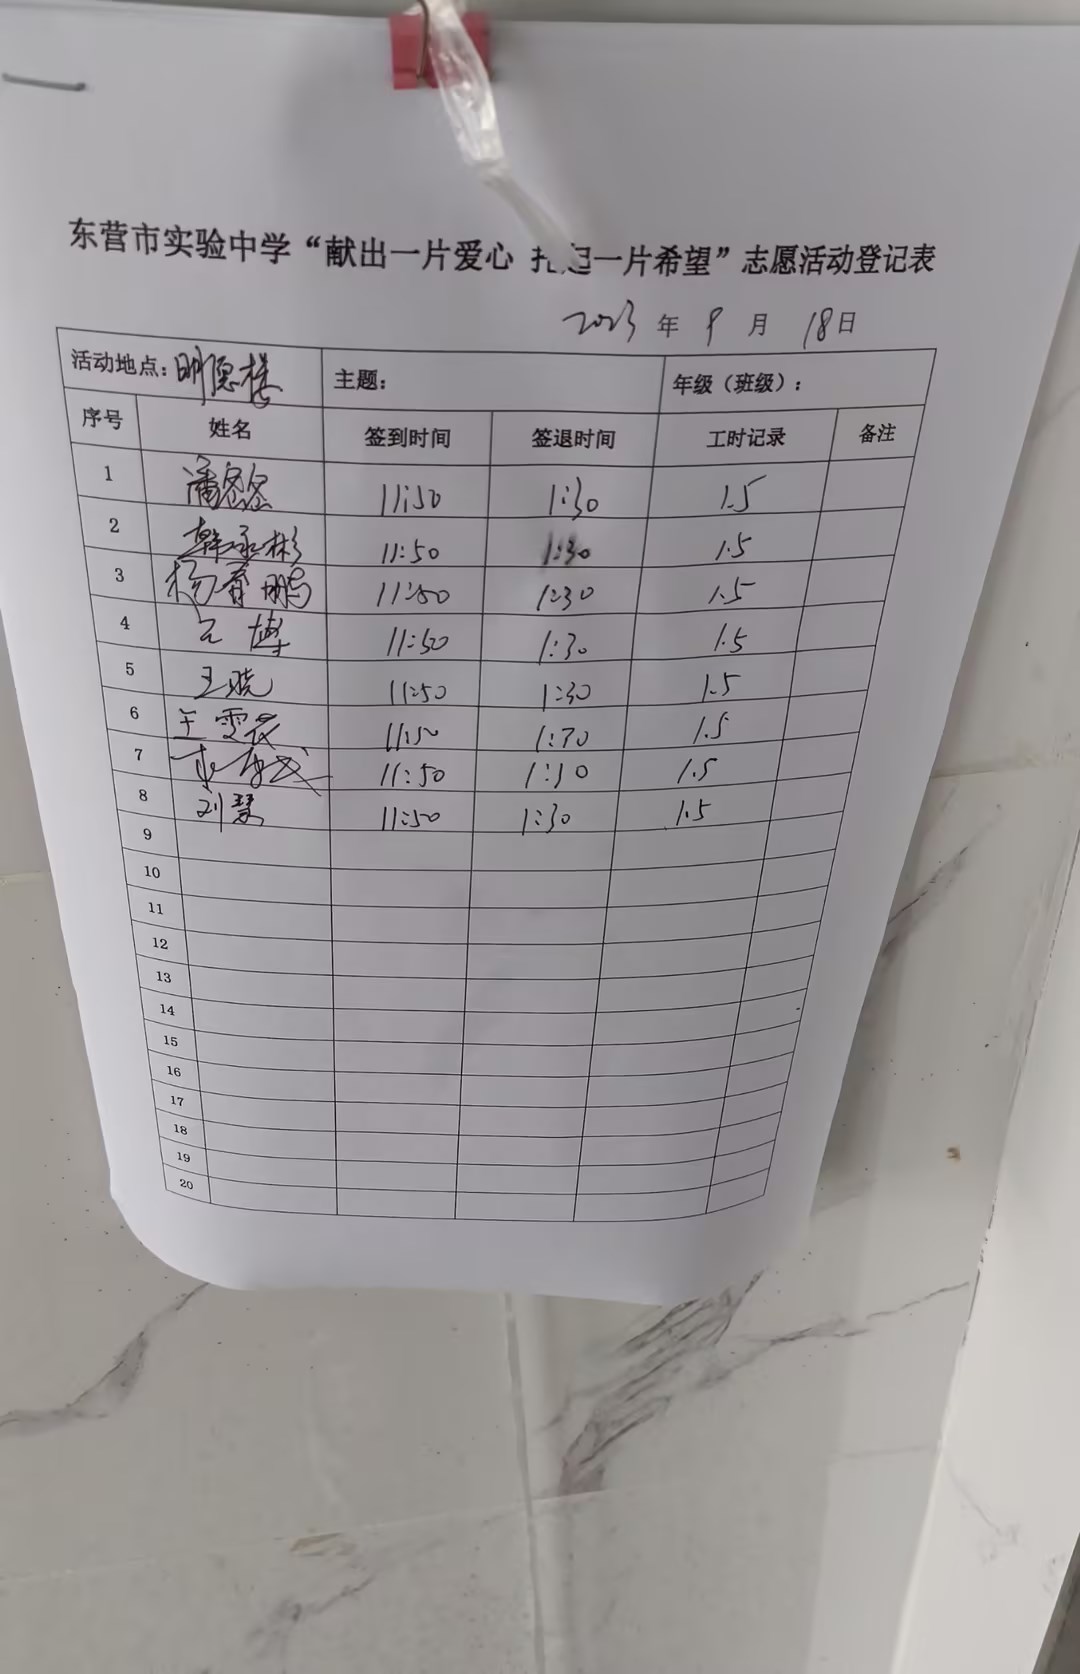 东营市实验中学“献出一片爱心 托起一片希望”志愿活动登记表
2023 年 9 月 18日
活动地点：明德楼 主题： 年级（班级）：
序号 姓名 签到时间 签退时间 工时记录 备注
1 潘 11:50 1:30 1.5
2 韩承彬 11:50 1:30 1.5
3 杨春鹏 11:50 1:30 1.5
4 11:50 1:30 1.5
5 王晓 11:50 1:30 1.5
6 王雯 11:50 1:30 1.5
7 11:50 1:30 1.5
8 刘慧 11:50 1:30 1.5
9
10
11
12
13
14
15
16
17
18
19
20